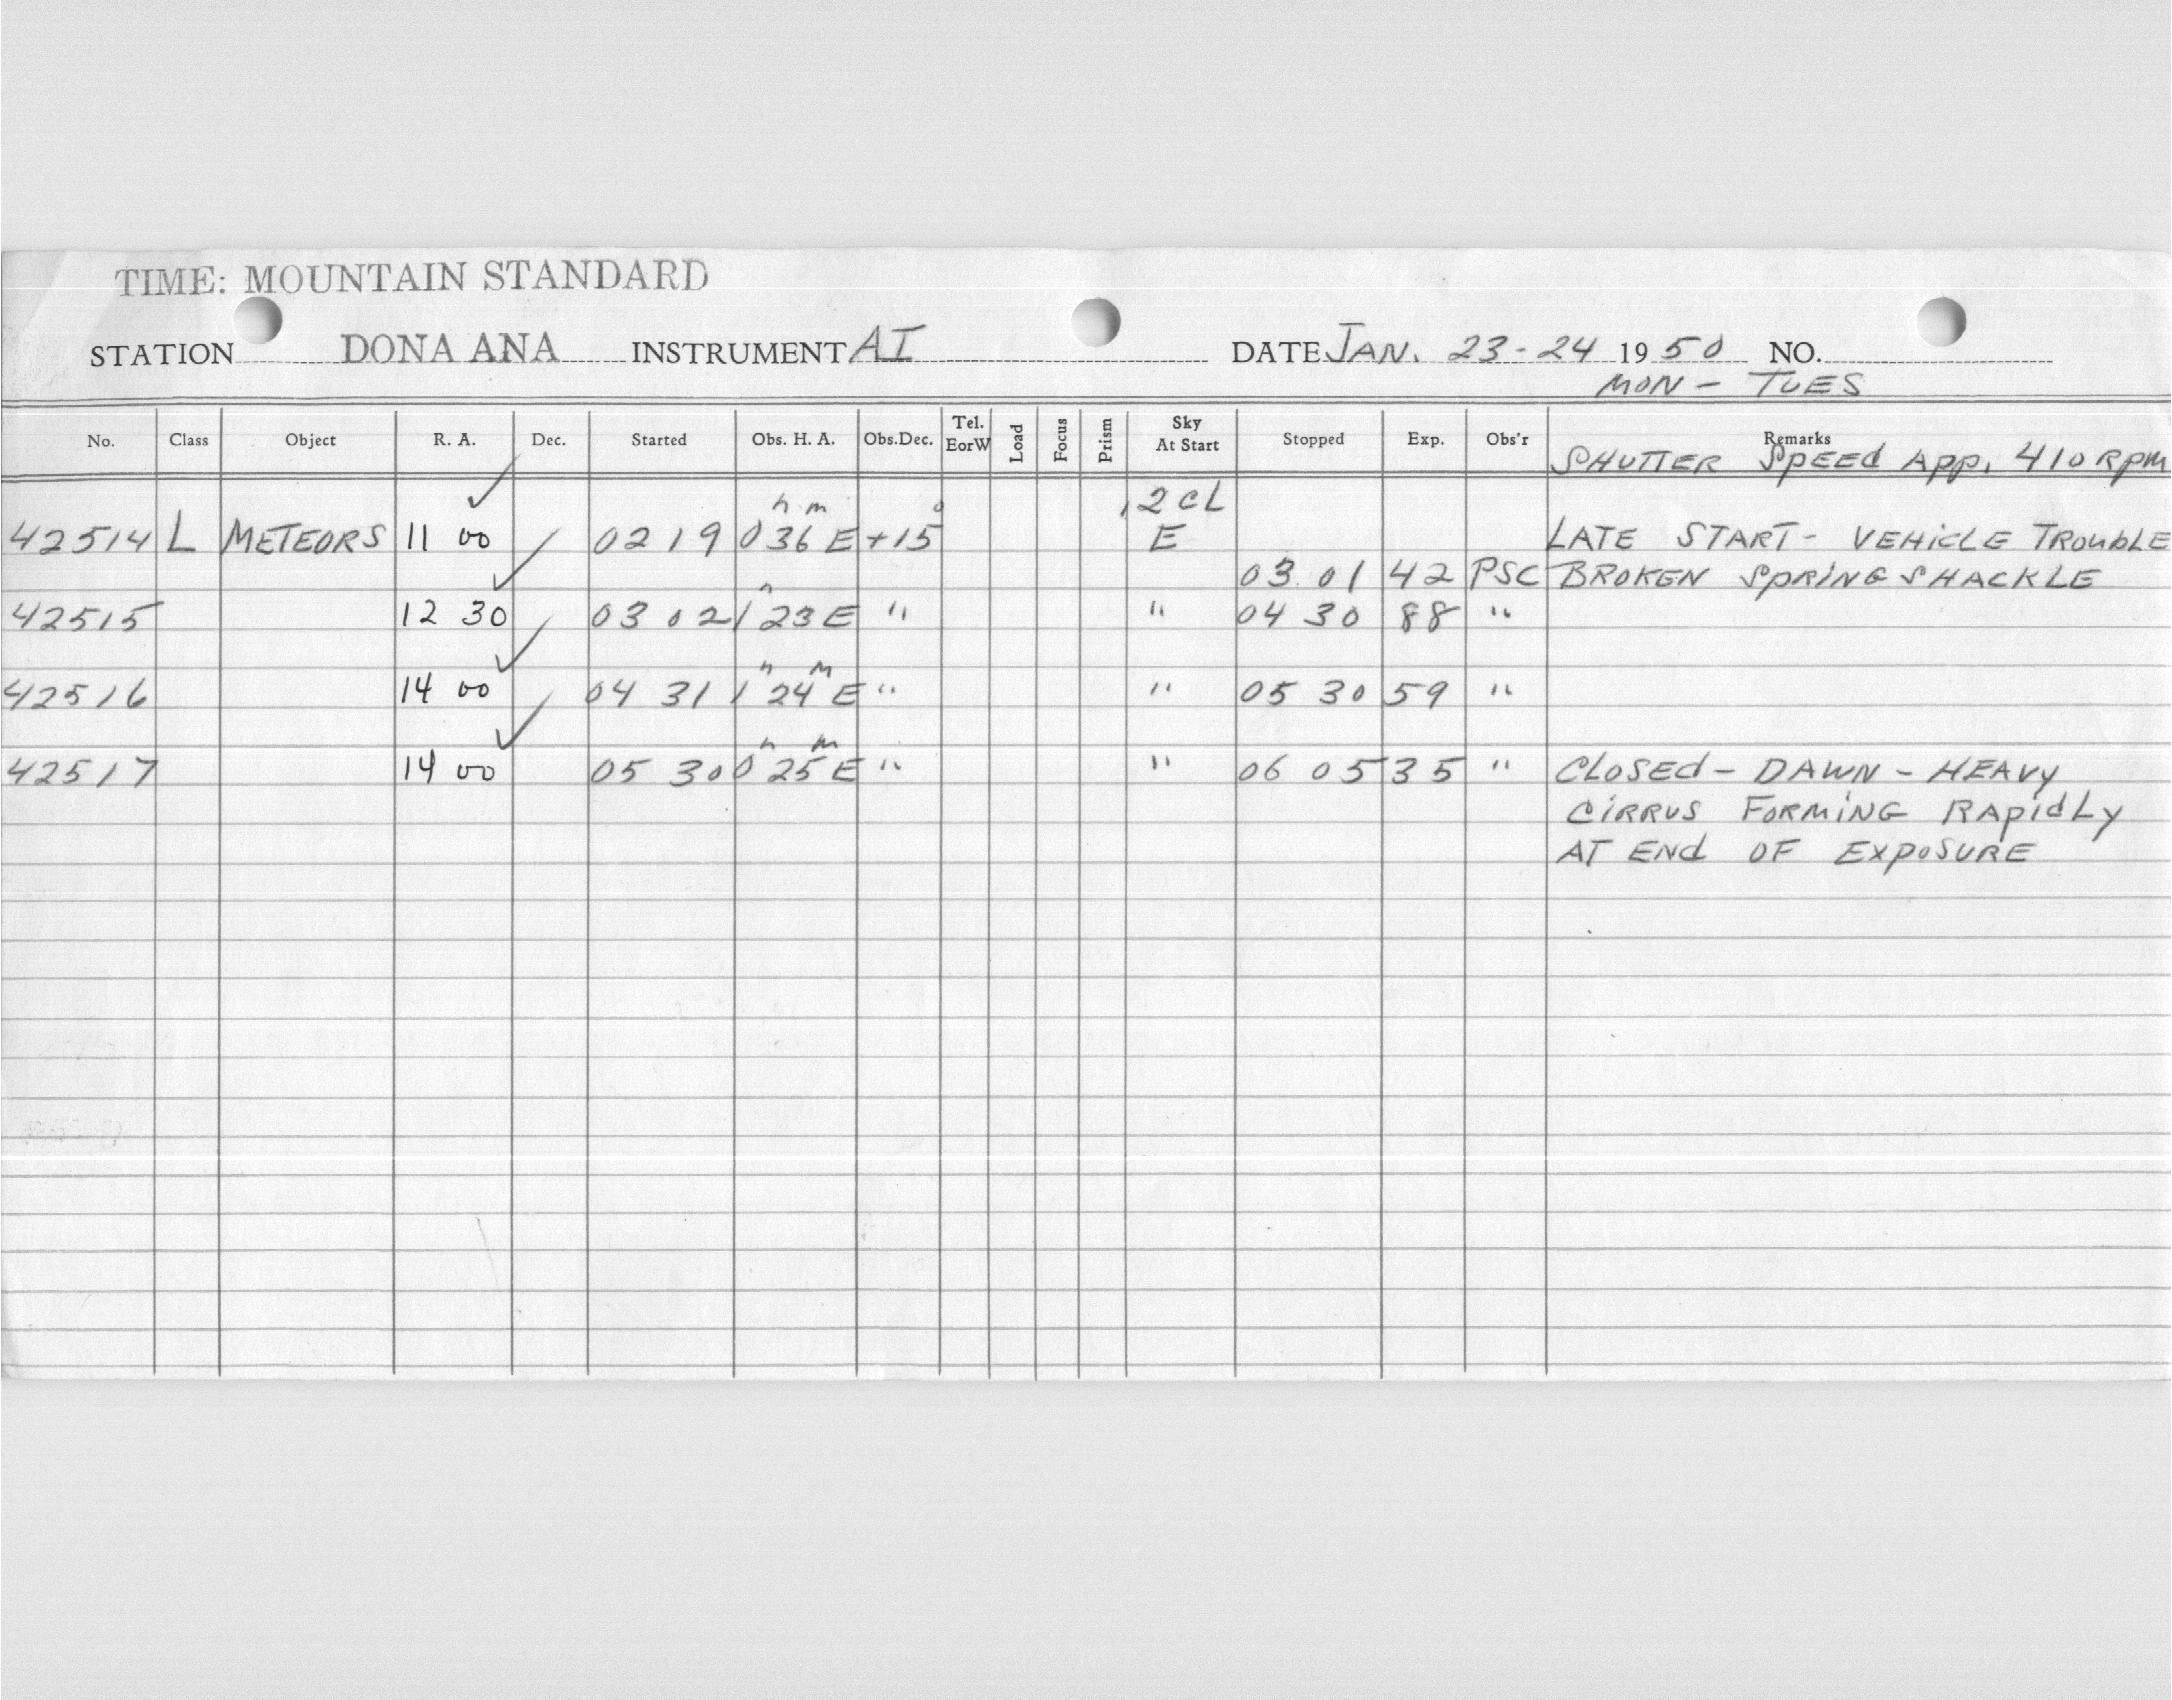 TIME: MOUNTAIN STANDARD
STATION DONA ANA INSTRUMENT AI DATE JAN. 23-24 1950 NO.
MON - TUES
No. Class Object R. A. Dec. Started Obs. H. A. Obs.Dec. Tel. EorW Load Focus Prism Sky At Start Stopped Exp. Obs'r Remarks
SHUTTER SPEEd APP. 410 RPM
h m ° .2 CL
42514 L METEORS 11 00 02 19 0 36 E +15 E LATE START - VEHiCLE TROUbLE
03 01 42 PSC BROKEN SPRiNG SHACKLE
h
42515 12 30 03 02 1 23 E " " 04 30 88 "
h m
42516 14 00 04 31 1 24 E " " 05 30 59 "
h m
42517 14 00 05 30 0 25 E " " 06 05 35 " CLOSEd - DAWN - HEAVy
CiRRUS FORMiNG RApidLy
AT ENd OF EXPOSURE